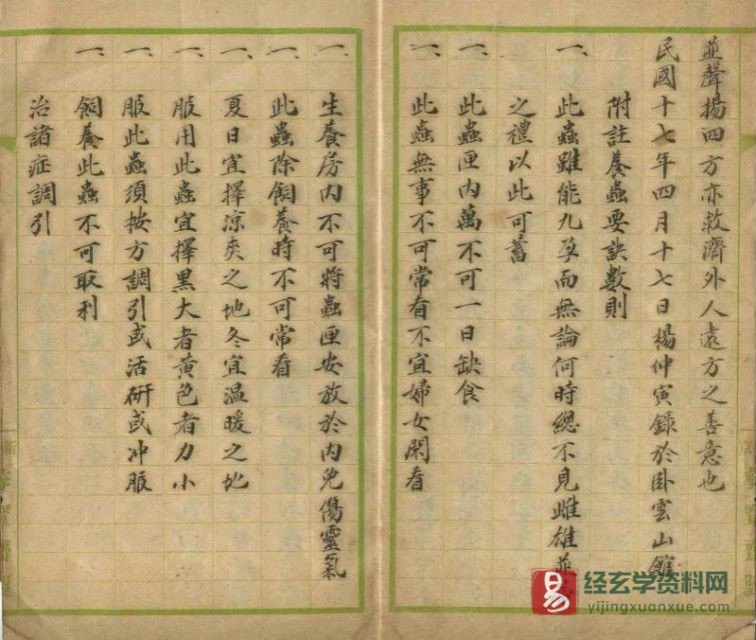 並聲揚四方亦救濟外人遠方之善意也
民國十七年四月十七日楊仲寅錄於卧雲山館
附註養蟲要訣數則
一、此蟲雖能九孕而無論何時總不見雌雄並
之禮以此可蓄
一、此蟲匣內萬不可一日缺食
一、此蟲無事不可常看不宜婦女閑看
一、生養房內不可將蟲匣安放於內免傷靈氣
一、此蟲除飼養時不可常看
一、夏日宜擇涼爽之地冬宜温暖之地
一、服用此蟲宜擇黑大者黃色者力小
一、服此蟲須按方調引或活研或冲服
一、飼養此蟲不可取利
治諸症調引
易
经玄学资料网
yijingxuanxue.com